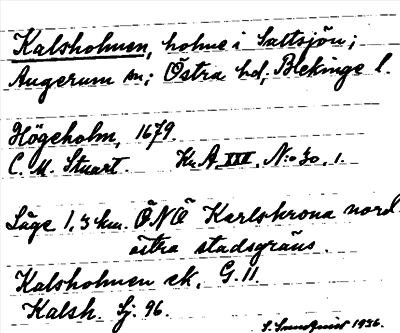 Kalsholmen, holme i Saltsjön;
Augerum sn; Östra hd; Blekinge l.
Högeholm, 1679.
C. M. Stuart. Kr. A. XIII, N:o 30, 1.
Läge 1,3 km. ÖNÖ Karlskrona nord
östra stadsgräns.
Kalsholmen ek. G. 11.
Kalsh. Sj. 96.
S. Sundquist 1936.